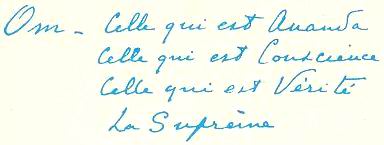 Om - Celle qui est Ananda
Celle qui est Conscience
Celle qui est Vérité
La Suprême